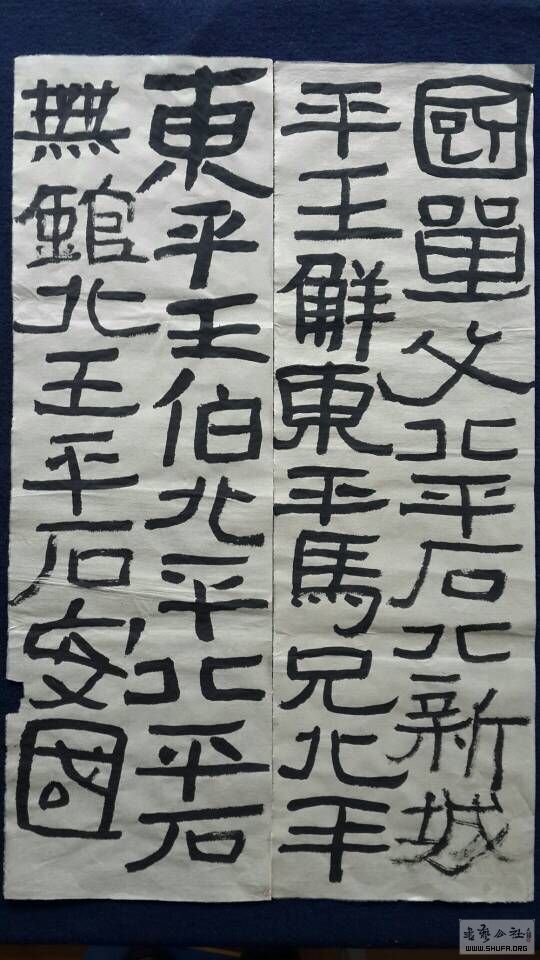 國單父北平石北新城
平王觧東平馬兄北
東平王伯北平北平石
無館北王平石安國
书艺公社
WWW.SHUFA.ORG